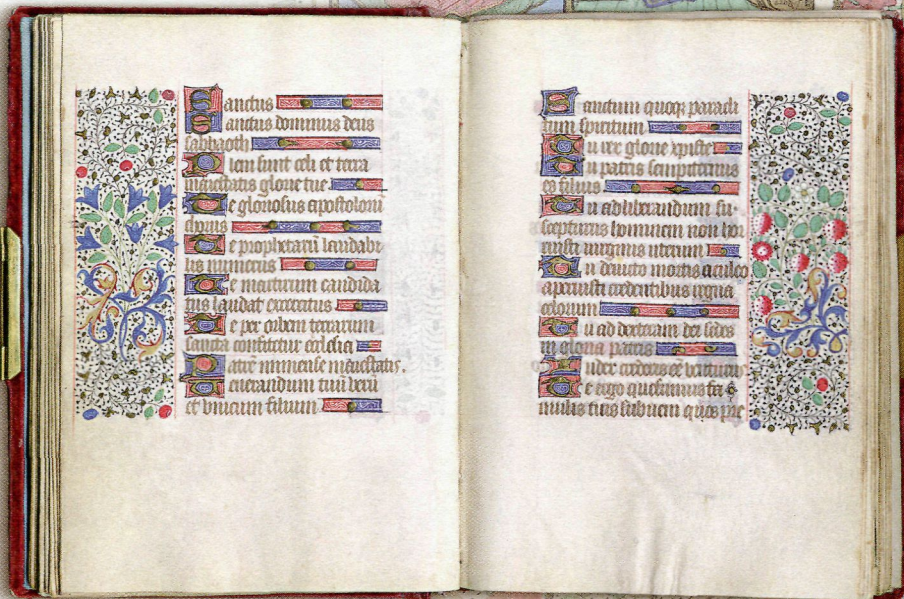 Sanctus
Sanctus dominus deus
sabbaoth
Pleni sunt celi et terra
maiestatis glorie tue
Te gloriosus apostoloru
chorus
Te prophetarū laudabi
lis numerus
Te martirum candida
tus laudat exercitus
Te per orbem terrarum
sancta confitetur ecclesia
Patrē immense maiestatis.
Venerandum tuū verū
et vnicum filium
Sanctum quoq; paracli
tum spiritum
Tu rex glorie xpiste
Tu patris sempiternus
es filius
Tu ad liberandum su
scepturus hominem non hor
ruisti virginis uterum
Tu deuicto mortis aculeo
aperuisti credentibus regna
celorum
Tu ad dexteram dei sedes
in gloria patris
Iudex crederis ee venturus
Te ergo quesumus fa
mulis tuis subueni quos pre